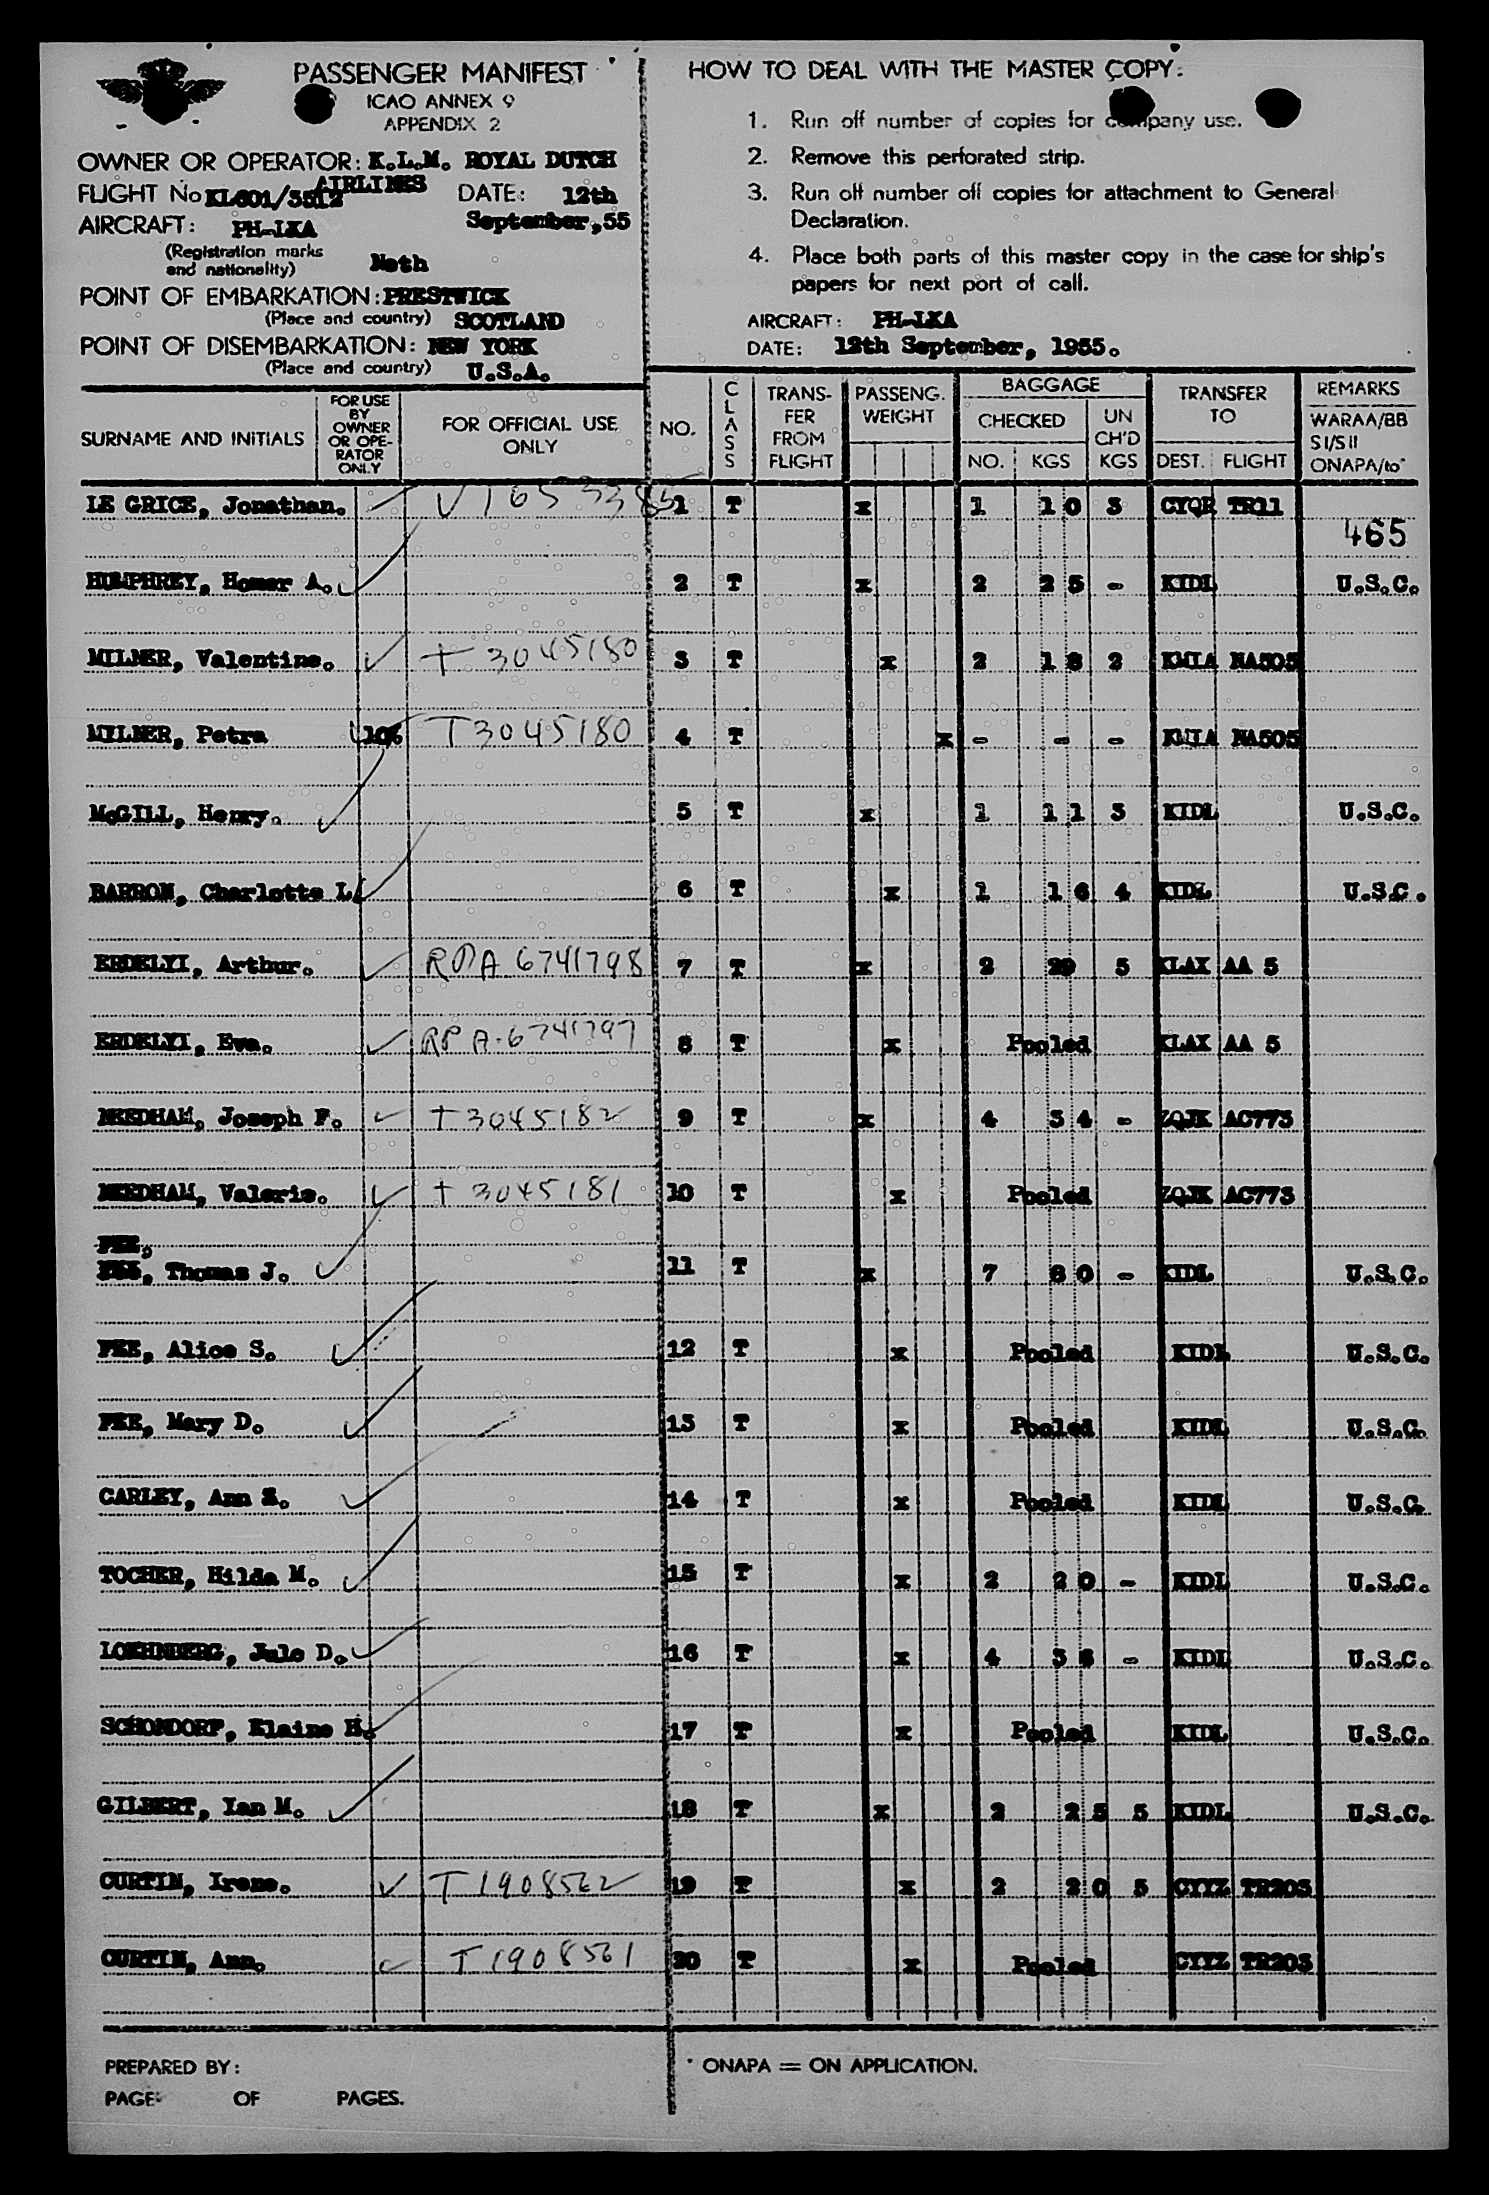 PASSENGER MANIFEST
ICAO ANNEX 9
APPENDIX 2
OWNER OR OPERATOR: K.L.M. ROYAL DUTCH
AIRLINES
FLIGHT No KL601/3512 DATE: 12th
September,55
AIRCRAFT: PH-LKA
(Registration marks
and nationality) Neth
POINT OF EMBARKATION: PRESTWICK
(Place and country) SCOTLAND
POINT OF DISEMBARKATION: NEW YORK
(Place and country) U.S.A.
HOW TO DEAL WITH THE MASTER COPY:
1. Run off number of copies for company use.
2. Remove this perforated strip.
3. Run off number off copies for attachment to General
Declaration.
4. Place both parts of this master copy in the case for ship's
papers for next port of call.
AIRCRAFT: PH-LKA
DATE: 12th September, 1955.
SURNAME AND INITIALS FOR USE BY OWNER OR OPE- RATOR ONLY FOR OFFICIAL USE ONLY NO. CLASS TRANS- FER FROM FLIGHT PASSENG. WEIGHT BAGGAGE CHECKED NO. KGS UN CH'D KGS TRANSFER TO DEST. FLIGHT REMARKS WARAA/BB SI/SII ONAPA/to*
LE GRICE, Jonathan. V1653385 1 T x 1 10 3 CYQR TR11
465
HUMPHREY, Homer A. 2 T x 2 25 - KIDL U.S.C.
MILNER, Valentine. T3045180 3 T x 2 18 2 KMIA NA505
MILNER, Petra 10% T3045180 4 T x - - - KMIA NA505
McGILL, Henry. 5 T x 1 11 3 KIDL U.S.C.
BARRON, Charlotte L. 6 T x 1 16 4 KIDL U.S.C.
ERDELYI, Arthur. RPA 6741798 7 T x 2 29 5 KLAX AA 5
ERDELYI, Eva. RPA.6741797 8 T x Pooled KLAX AA 5
NEEDHAM, Joseph F. T3045182 9 T x 4 34 - ZQJK AC773
NEEDHAM, Valerie. T3045181 10 T x Pooled ZQJK AC773
FEE,
FEE, Thomas J. 11 T x 7 60 - KIDL U.S.C.
FEE, Alice S. 12 T x Pooled KIDL U.S.C.
FEE, Mary D. 13 T x Pooled KIDL U.S.C.
CARLEY, Ann E. 14 T x Pooled KIDL U.S.C.
TOCHER, Hilda M. 15 T x 2 20 - KIDL U.S.C.
LOEHNBERG, Jule D. 16 T x 4 36 - KIDL U.S.C.
SCHONDORF, Elaine H. 17 T x Pooled KIDL U.S.C.
GILBERT, Ian M. 18 T x 2 25 5 KIDL U.S.C.
CURTIN, Irene. T1908562 19 T x 2 20 5 CYYZ TR203
CURTIN, Ann. T1908561 20 T x Pooled CYYZ TR203
PREPARED BY:
PAGE OF PAGES.
* ONAPA = ON APPLICATION.